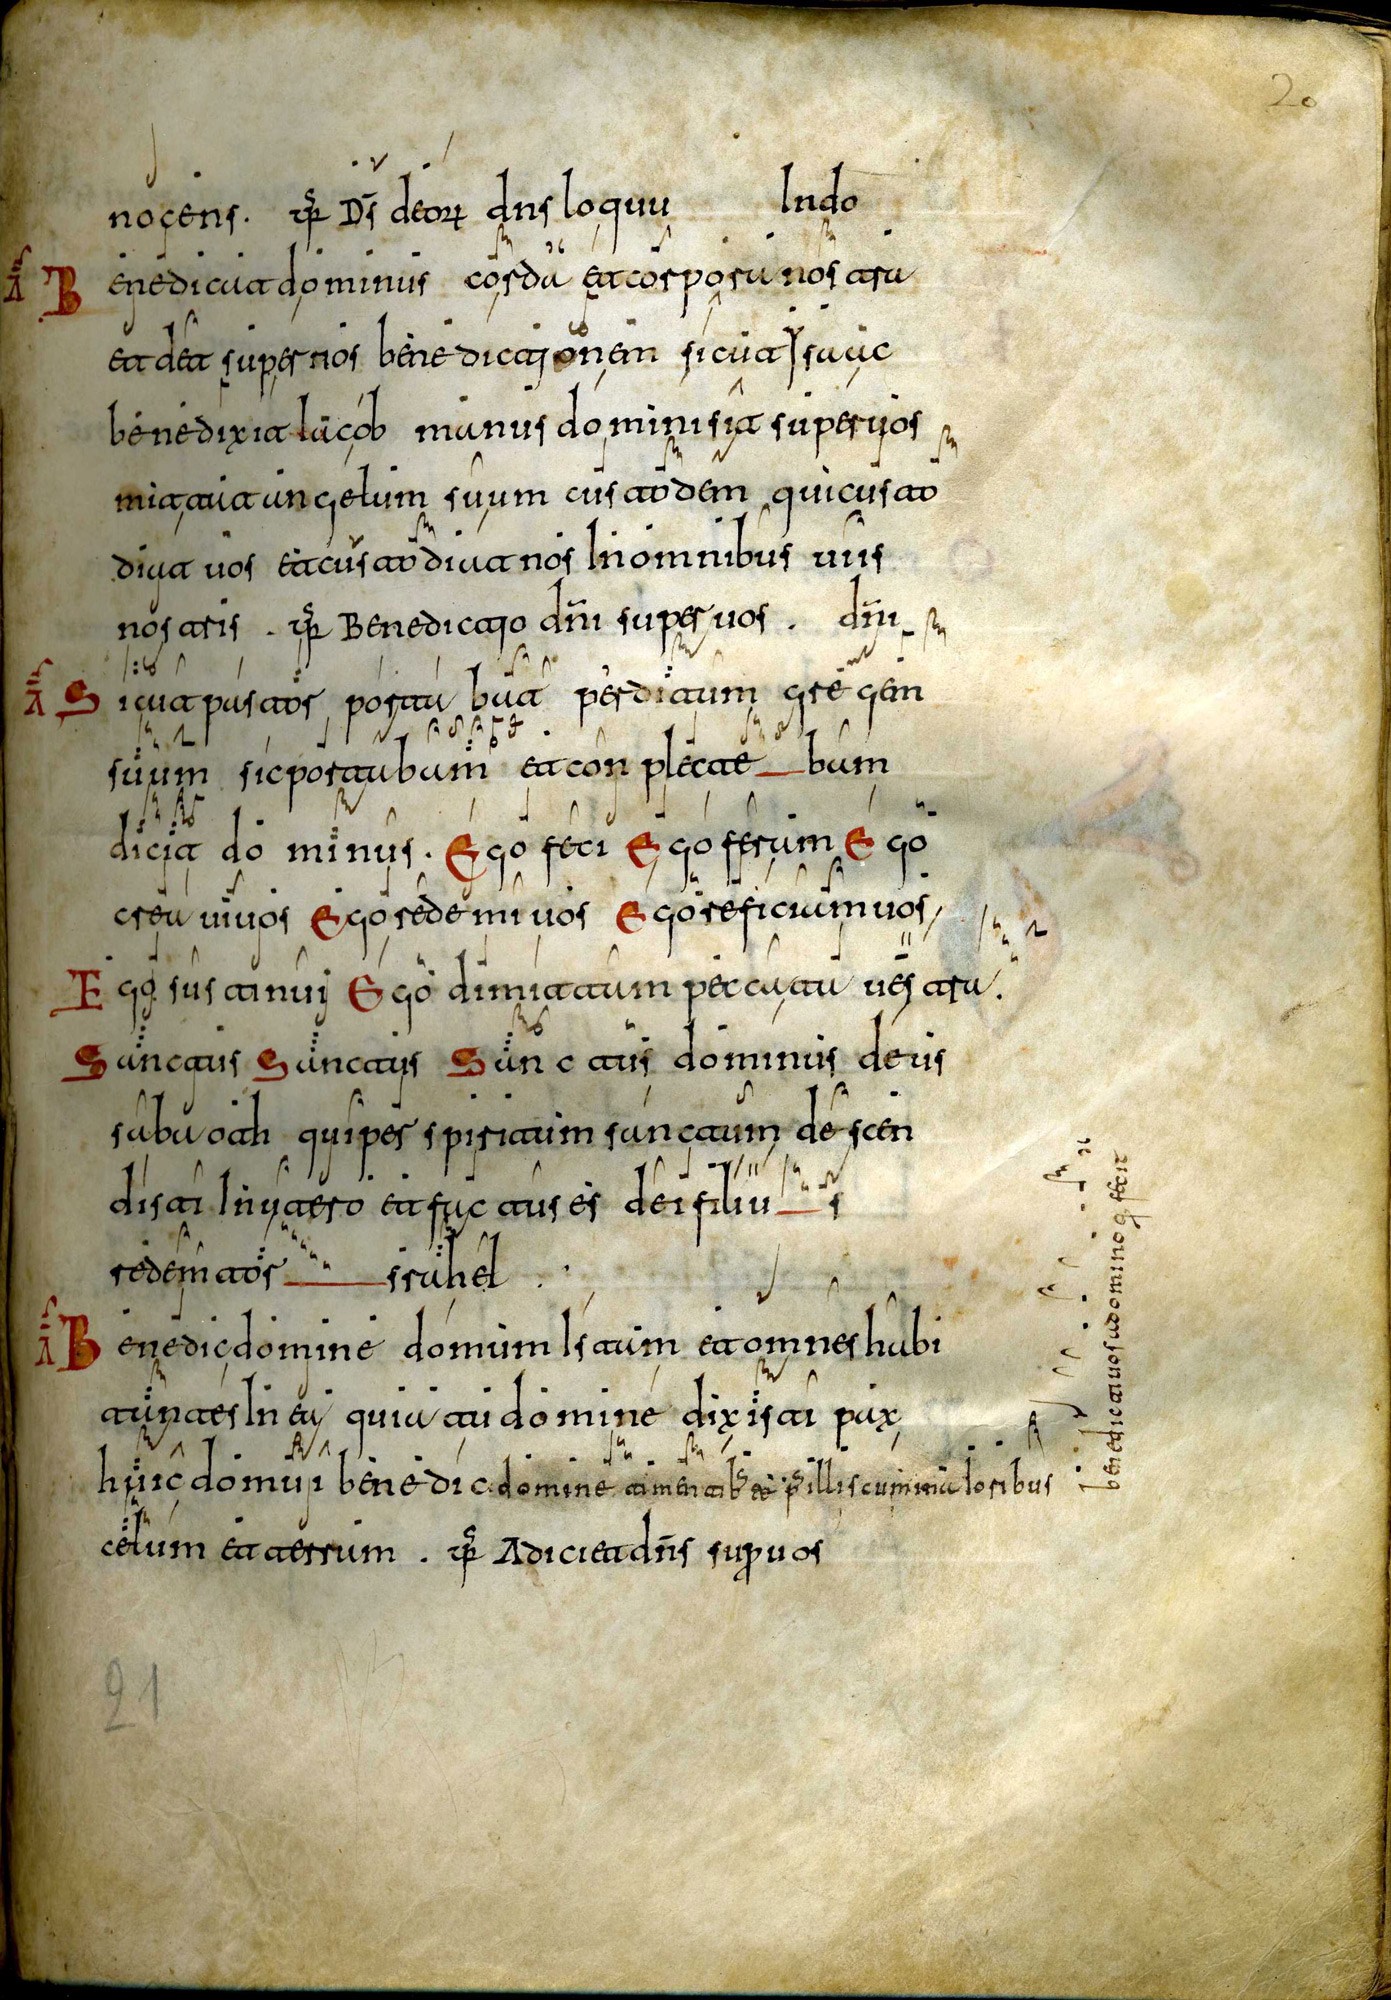 20
nocens. psr Ds deorum dns loquu Indo
A Benedicat dominus corda et corpora nostra
et det super nos benedictjonem sicut Isaac
benedixit Iacob manus domini sit super uos
mittat angelum suum custodem qui custo
diat uos et custodiat nos In omnibus uiis
nostris. psr Benedictjo dni super uos. dni
A Sicut pastor portabat perditum gregem
suum sic portabam et conplecte bam
dicit dominus. Ego feci Ego feram Ego
creaui uos Ego redemi uos Ego reficiam uos
Ego sustinui Ego dimittam peccata uestra.
Sanctus Sanctus Sanctus dominus deus
sabaoth qui per spiritum sanctum descen
disti In utero et factus es dei filiu s
redemtor israhel
A Benedic domine domum Istam et omnes habi
tantes In ea quia tu domine dixisti pax
huic domui benedic domine timentibs te psillis cum maioribus
celum et terram. psr Adiciat dns supr uos
benedicti uos a domino q fecit
21